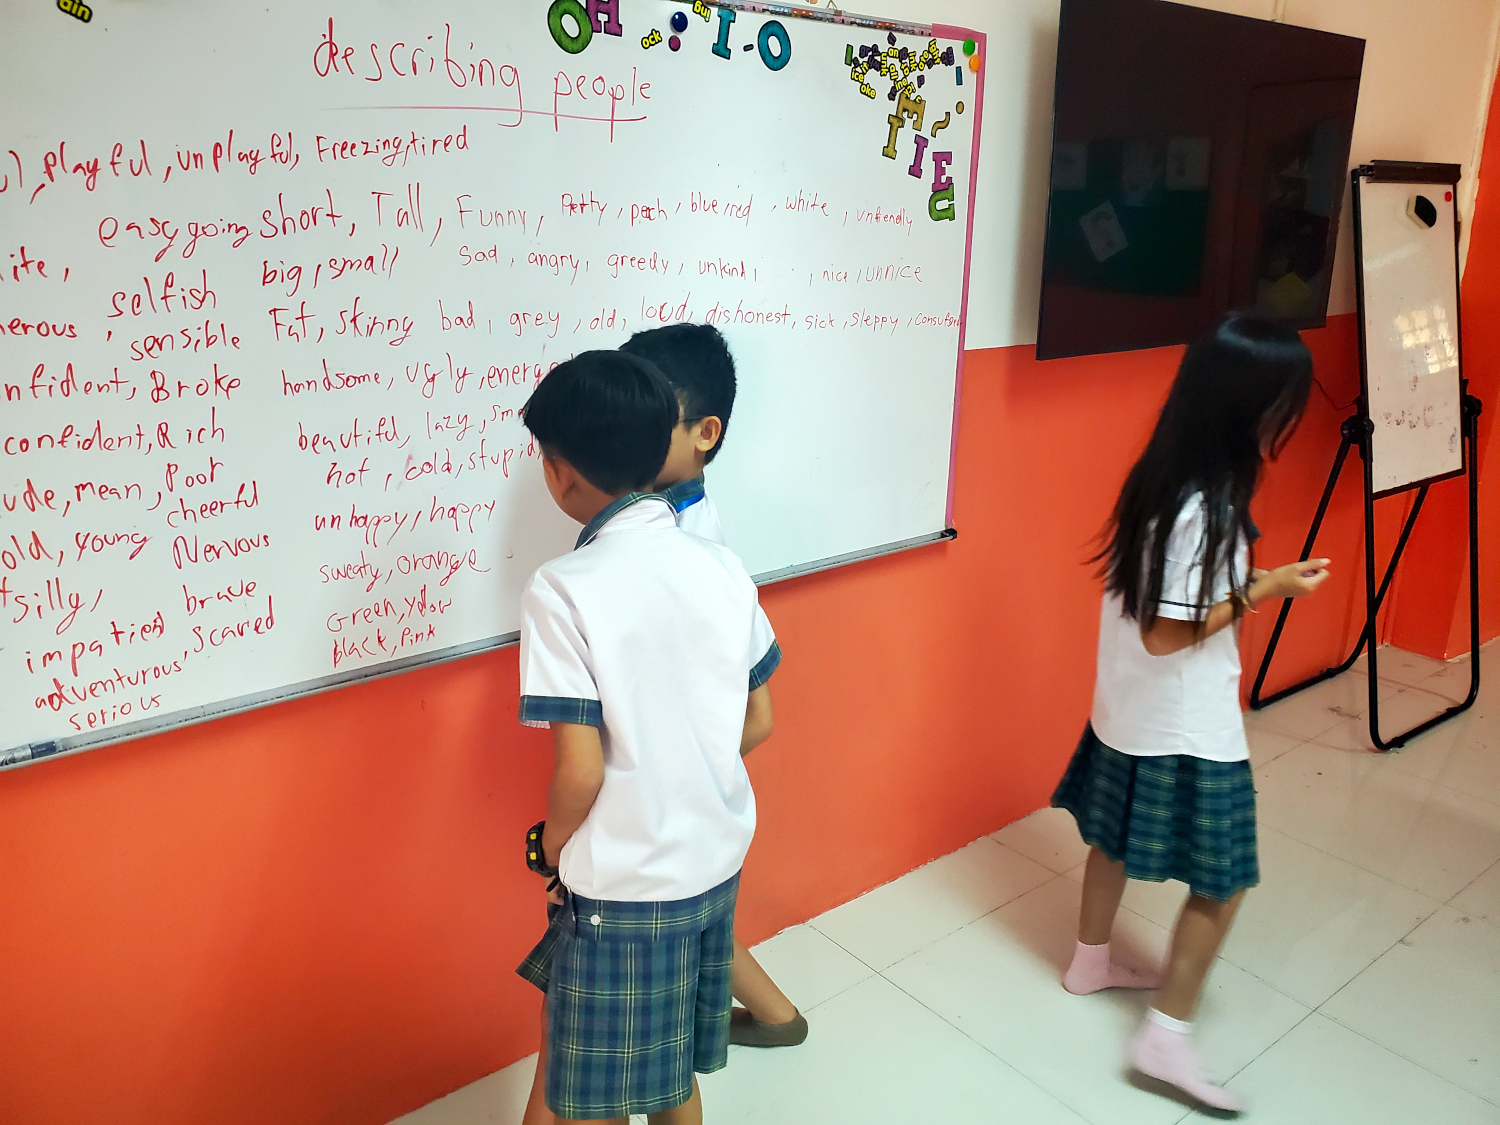 describing people
playful, unplayful, Freezing, tired
easygoing short, Tall, Funny, Petty, peach, blue, red, white, unfiendly
ite, selfish big, small sad, angry, greedy, unkind, , nice, unnice
nerous, sensible Fat, skinny bad, grey, old, loud, dishonest, sick, sleppy,
nfident, Broke handsome, ugly, energ
confident, Rich beautiful, lazy, sma
ude, mean, poor hot, cold, stupid,
cheerful
old, young unhappy, happy
Nervous sweaty, orange
silly, brave Green,
impatien scared black, pink
adventurous,
serious
ain
OH
ock
ing
I-O
ice
oke
ine
an
M
I
I
E
U